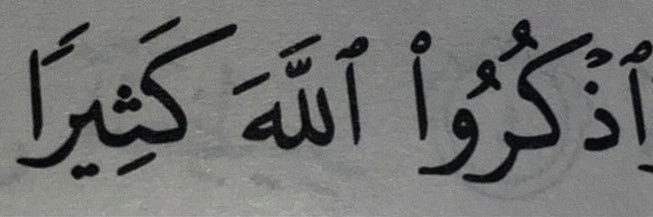 ٱذْكُرُواْ ٱللَّهَ كَثِيرًا